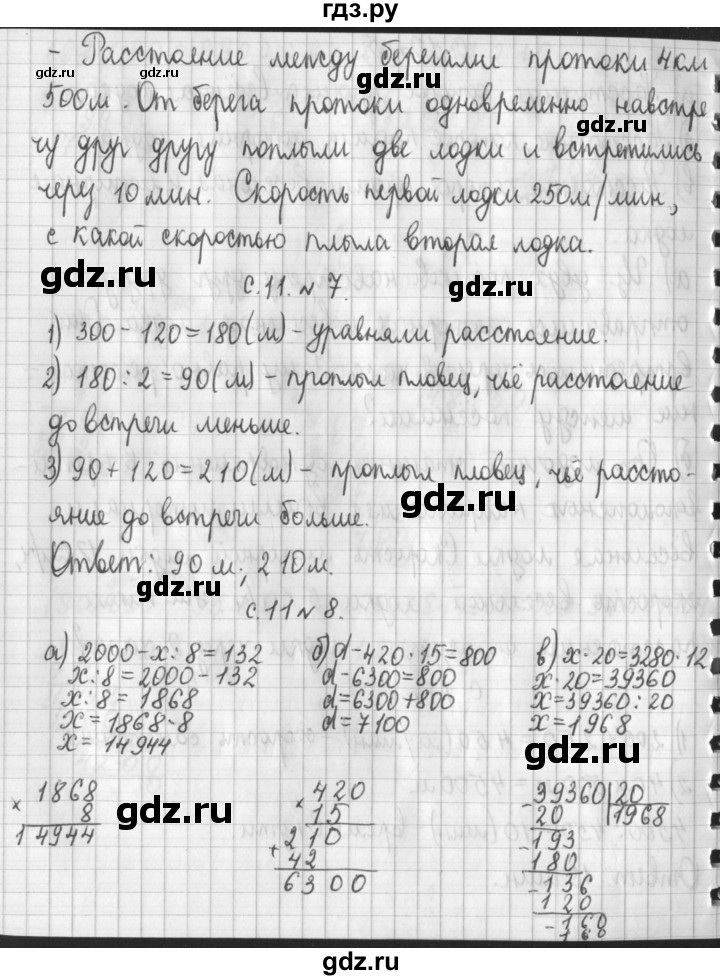 гдз.ру
- Расстояние между берегами протоки 4км
gdz.ru gdz.ru gdz.ru
500м. От берега протоки одновременно навстре
gdz.ru
чу друг другу поплыли две лодки и встретились
через 10 мин. Скорость первой лодки 250м/мин,
с какой скоростью плыла вторая лодка.
gdz.ru gdz.ru
с.11. № 7.
1) 300-120=180(м) - уравняли расстояние.
2) 180:2=90(м) - проплыл пловец, чьё расстояние
до встречи меньше.
3) 90+120=210(м) - проплыл пловец, чьё рассто-
gdz.ru
яние до встречи больше.
Ответ: 90 м; 210м.
gdz.ru
с.11 № 8.
gdz.ru
а) 2000-x:8=132 б) d-420·15=800 в) x·20=3280·12
x:8=2000-132 d-6300=800 x·20=39360
x:8=1868 d=6300+800 x=39360:20
x=1868·8 d=7100 x=1968
x=14944
gdz.ru gdz.ru
1868 420 39360 20
× 8 × 15 - 20 1968
14944 210 - 193
+ 42 180
6300 - 136
120
- 168
168
gdz.ru